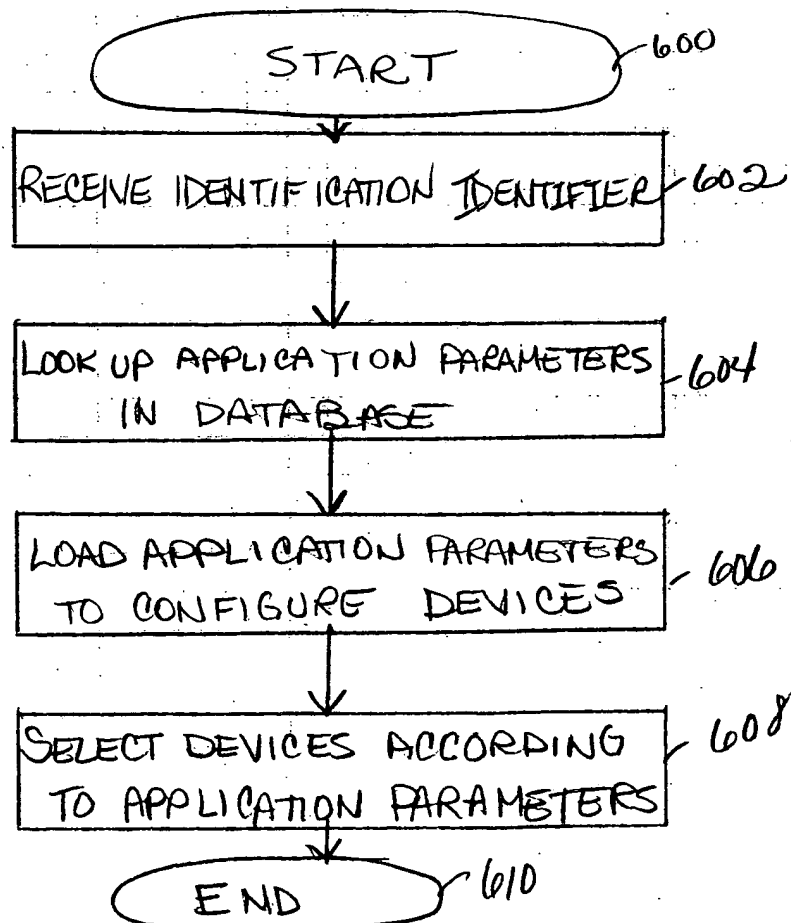 START
600
RECEIVE IDENTIFICATION IDENTIFIER
602
LOOK UP APPLICATION PARAMETERS
IN DATABASE
604
LOAD APPLICATION PARAMETERS
TO CONFIGURE DEVICES
606
SELECT DEVICES ACCORDING
TO APPLICATION PARAMETERS
608
END
610